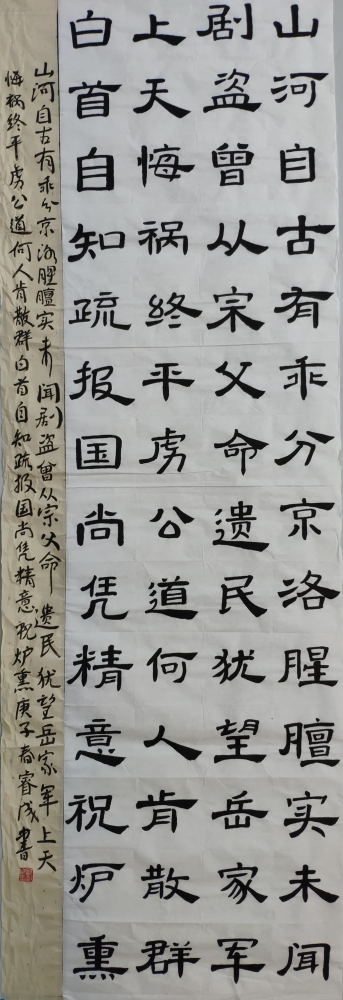 山河自古有乖分京洛腥膻实未闻
剧盗曾从宗父命遗民犹望岳家军
上天悔祸终平虏公道何人肯散群
白首自知疏报国尚凭精意祝炉熏
山河自古有乖分京洛腥膻实未闻剧盗曾从宗父命遗民犹望岳家军上天
悔祸终平虏公道何人肯散群白首自知疏报国尚凭精意祝炉熏庚子春睿成書